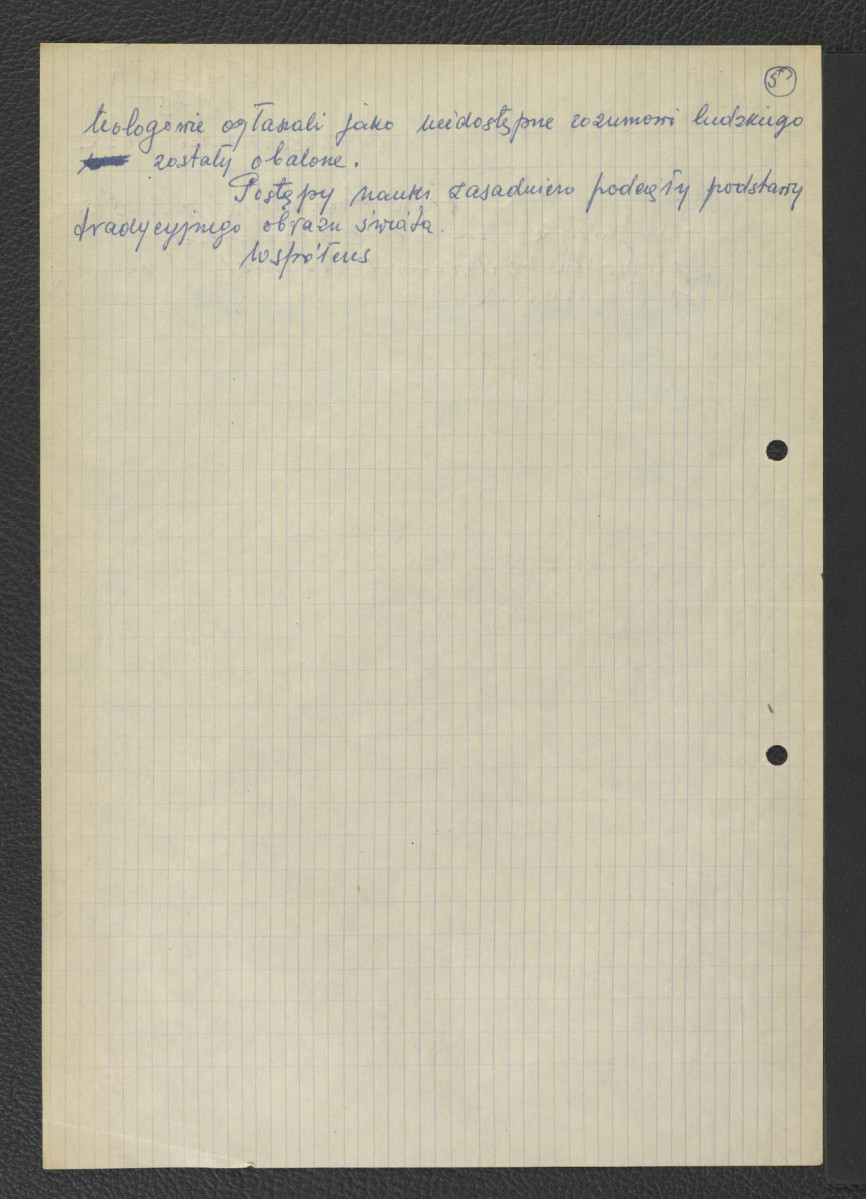 5
teologowie ogłaszali jako niedostępne rozumowi ludzkiego
zostały obalone.
Postępy nauki zasadniczo podcięły podstawy
tradycyjnego obrazu świata.